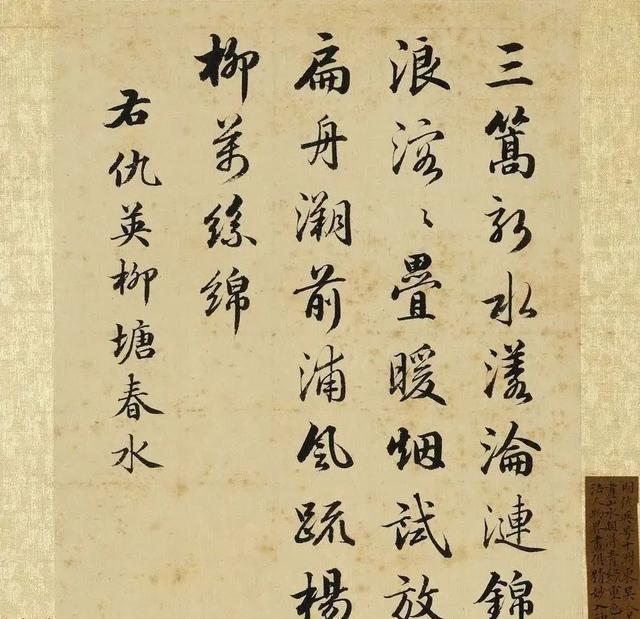 三篙新水漾淪漣錦
浪溶〻疊暖烟試放
扁舟溯前浦風疏楊
柳萬絲綿
右仇英柳塘春水